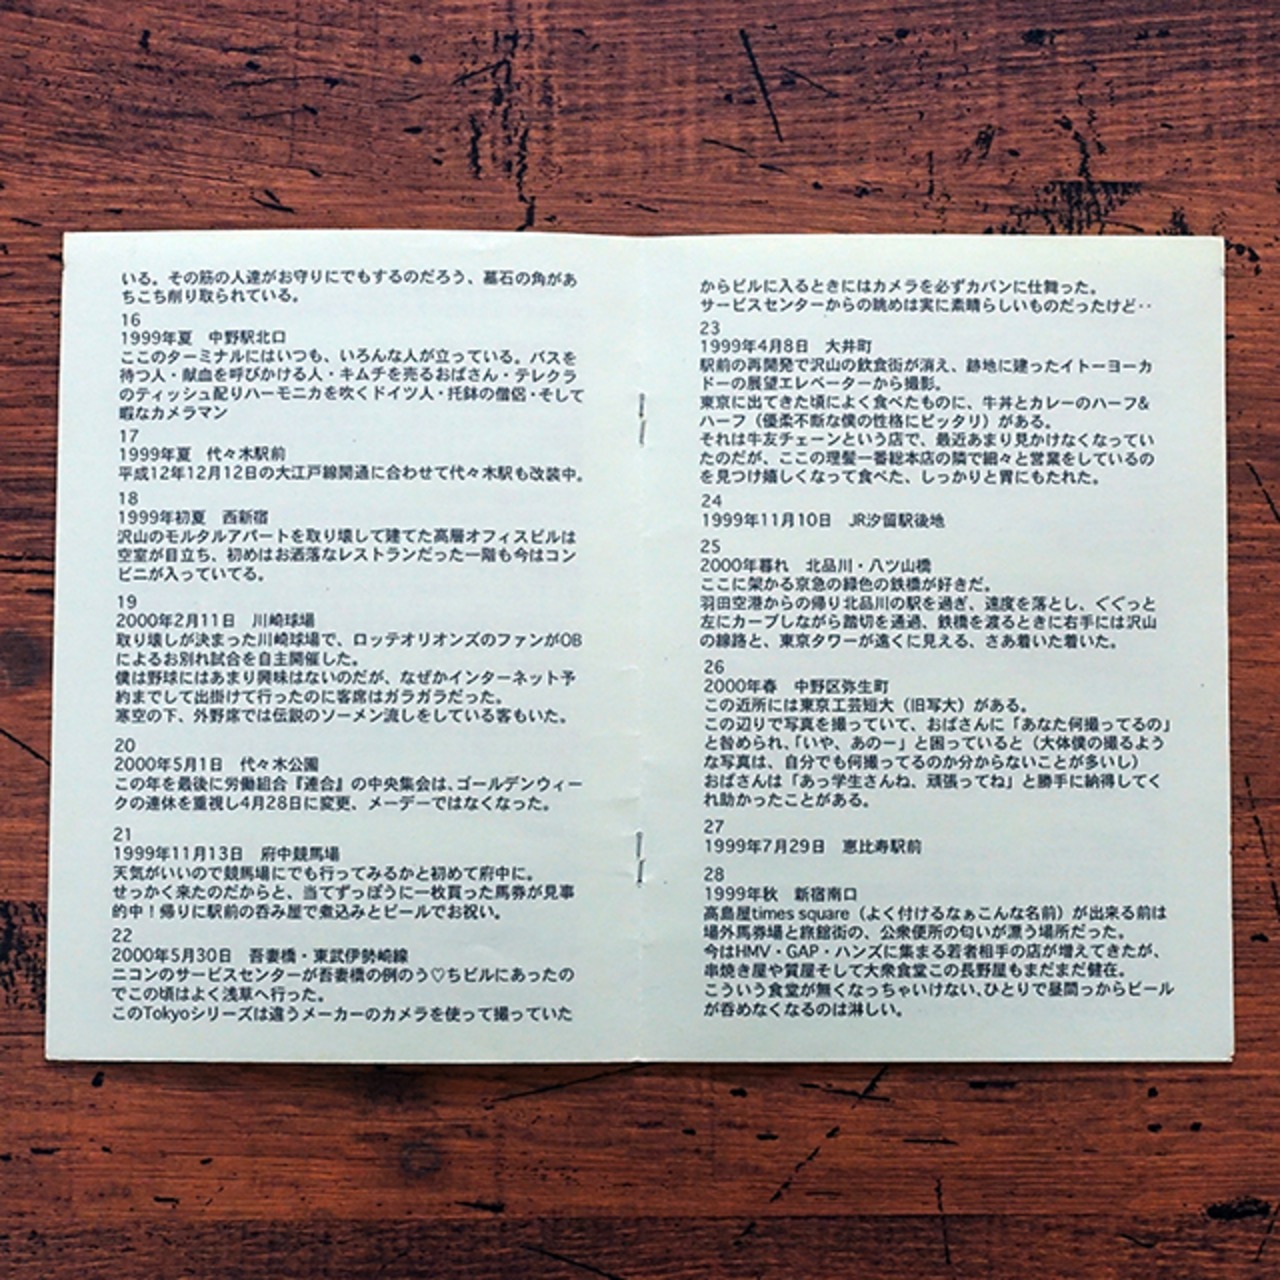 いる。その筋の人達がお守りにでもするのだろう、墓石の角があ
ちこち削り取られている。
16
1999年夏　中野駅北口
ここのターミナルにはいつも、いろんな人が立っている。バスを
待つ人・献血を呼びかける人・キムチを売るおばさん・テレクラ
のティッシュ配りハーモニカを吹くドイツ人・托鉢の僧侶・そして
暇なカメラマン
17
1999年夏　代々木駅前
平成12年12月12日の大江戸線開通に合わせて代々木駅も改装中。
18
1999年初夏　西新宿
沢山のモルタルアパートを取り壊して建てた高層オフィスビルは
空室が目立ち、初めはお洒落なレストランだった一階も今はコン
ビニが入っていてる。
19
2000年2月11日　川崎球場
取り壊しが決まった川崎球場で、ロッテオリオンズのファンがOB
によるお別れ試合を自主開催した。
僕は野球にはあまり興味はないのだが、なぜかインターネット予
約までして出掛けて行ったのに客席はガラガラだった。
寒空の下、外野席では伝説のソーメン流しをしている客もいた。
20
2000年5月1日　代々木公園
この年を最後に労働組合『連合』の中央集会は、ゴールデンウィー
クの連休を重視し4月28日に変更、メーデーではなくなった。
21
1999年11月13日　府中競馬場
天気がいいので競馬場にでも行ってみるかと初めて府中に。
せっかく来たのだからと、当てずっぽうに一枚買った馬券が見事
的中！帰りに駅前の呑み屋で煮込みとビールでお祝い。
22
2000年5月30日　吾妻橋・東武伊勢崎線
ニコンのサービスセンターが吾妻橋の例のう♡ちビルにあったの
でこの頃はよく浅草へ行った。
このTokyoシリーズは違うメーカーのカメラを使って撮っていた
からビルに入るときにはカメラを必ずカバンに仕舞った。
サービスセンターからの眺めは実に素晴らしいものだったけど‥
23
1999年4月8日　大井町
駅前の再開発で沢山の飲食街が消え、跡地に建ったイトーヨーカ
ドーの展望エレベーターから撮影。
東京に出てきた頃によく食べたものに、牛丼とカレーのハーフ&
ハーフ（優柔不断な僕の性格にピッタリ）がある。
それは牛友チェーンという店で、最近あまり見かけなくなってい
たのだが、ここの理髪一番総本店の隣で細々と営業をしているの
を見つけ嬉しくなって食べた、しっかりと胃にもたれた。
24
1999年11月10日　JR汐留駅後地
25
2000年暮れ　北品川・八ツ山橋
ここに架かる京急の緑色の鉄橋が好きだ。
羽田空港からの帰り北品川の駅を過ぎ、速度を落とし、ぐぐっと
左にカーブしながら踏切を通過、鉄橋を渡るときに右手には沢山
の線路と、東京タワーが遠くに見える、さあ着いた着いた。
26
2000年春　中野区弥生町
この近所には東京工芸短大（旧写大）がある。
この辺りで写真を撮っていて、おばさんに「あなた何撮ってるの」
と咎められ、「いや、あのー」と困っていると（大体僕の撮るよう
な写真は、自分でも何撮ってるのか分からないことが多いし）
おばさんは「あっ学生さんね、頑張ってね」と勝手に納得してく
れ助かったことがある。
27
1999年7月29日　恵比寿駅前
28
1999年秋　新宿南口
高島屋times square（よく付けるなぁこんな名前）が出来る前は
場外馬券場と旅館街の、公衆便所の匂いが漂う場所だった。
今はHMV・GAP・ハンズに集まる若者相手の店が増えてきたが、
串焼き屋や質屋そして大衆食堂この長野屋もまだまだ健在。
こういう食堂が無くなっちゃいけない、ひとりで昼間っからビール
が呑めなくなるのは淋しい。